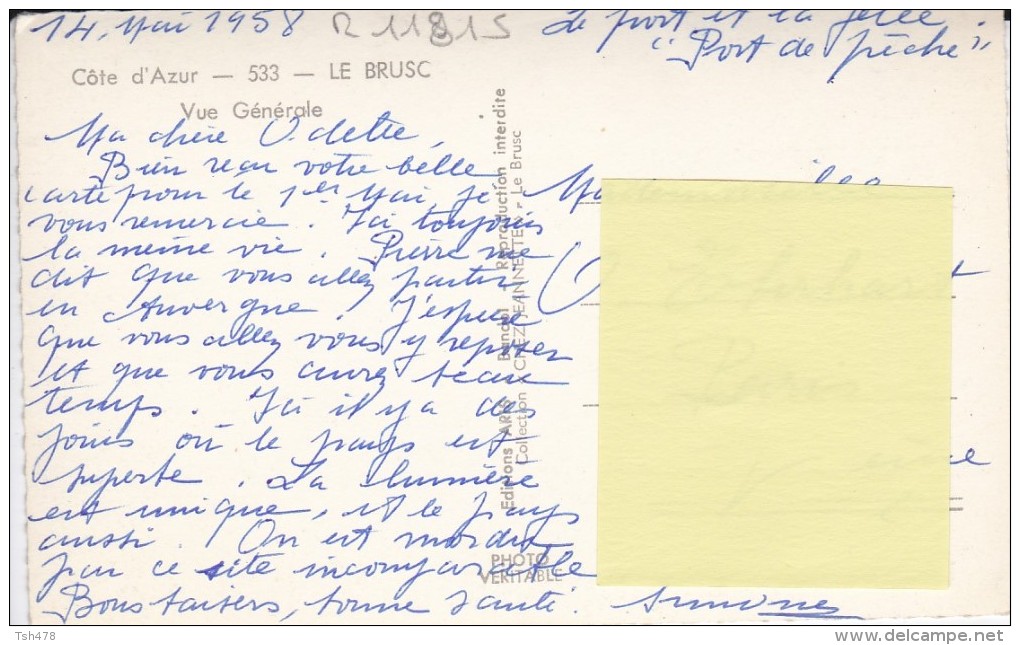 14, Mai 1958
R 11815
Le port et la jetée.
"Port de pêche"
Côte d'Azur — 533 — LE BRUSC
Vue Générale
Ma chère Odette,
Bien reçu votre belle
carte pour le 1er Mai je
vous remercie. Ici toujours
la même vie. Pierre me
dit que vous allez partir
en Auvergne. J'espère
que vous allez vous y reposer
et que vous aurez beau
temps. Ici il y a des
jours où le pays est
superbe. La lumière
est unique, et le pays
aussi. On est mordu
par ce site incomparable
Bons baisers, bonne santé. Simone
Editions ARIS Bandol - Reproduction interdite
Collection CHEZ JEANNETTE - Le Brusc
PHOTO
VERITABLE
Tsh478
www.delcampe.net